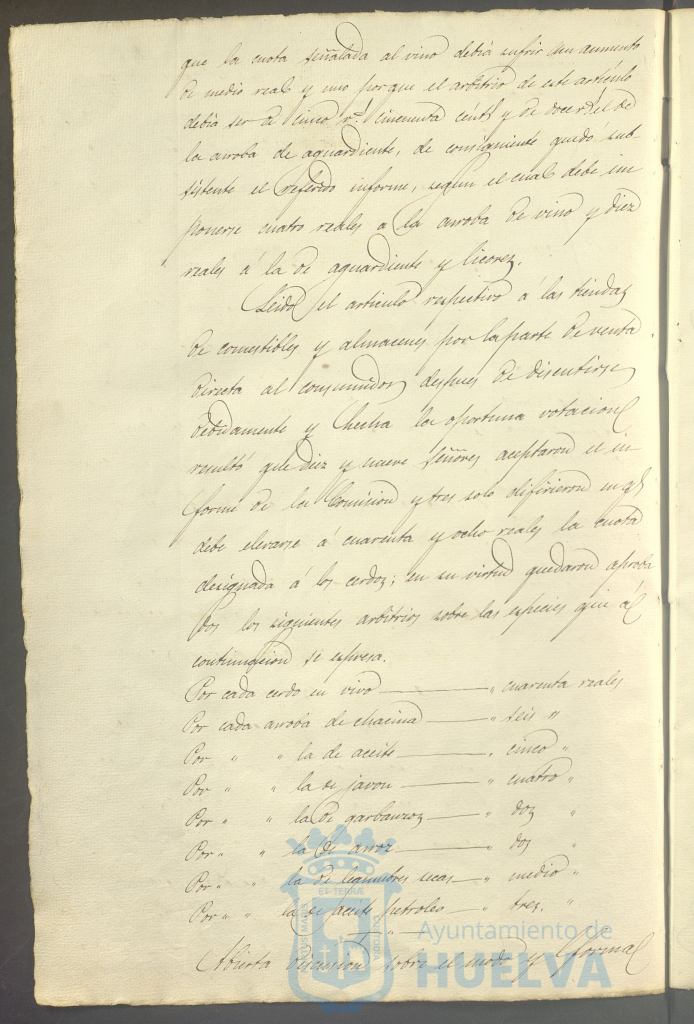 que la cuota señalada al vino debia sufrir un aumento
de medio real y uno porque el arbitrio de este artículo
debia ser de cinco rs. cincuenta cénts y de doce rs. el de
la arroba de aguardiente, de consiguiente quedo sub
sistente el referido informe, segun el cual debe im
ponerse cuatro reales a la arroba de vino y diez
reales á la de aguardiente y licores.
Leido el articulo respectivo á las tiendas
de comestibles y almacenes por la parte de venta
directa al consumidor, despues de discutirse
debidamente y hecha la oportuna votacion
resultó que diez y nueve Señores aceptaron el in
forme de la Comision y tres solo difirieron en q.
debe elevarse á cuarenta y ocho reales la cuota
designada á los cerdos; en su virtud quedaron aproba
dos los siguientes arbitrios sobre las especies que á
continuacion se espresa.
Por cada cerdo en vivo ——— " cuarenta reales
Por cada arroba de chacina ——— " seis "
Por " " la de aceite ——— " cinco "
Por " " la de javon ——— " cuatro "
Por " " la de garbanzos ——— " dos "
Por " " la de arroz ——— " dos "
Por " " la de legumbres secas — " medio "
Por " " la de aceite petroleo — " tres. "
Abierta discusion sobre el modo y forma
ET TERRA
Ayuntamiento de
HUELVA